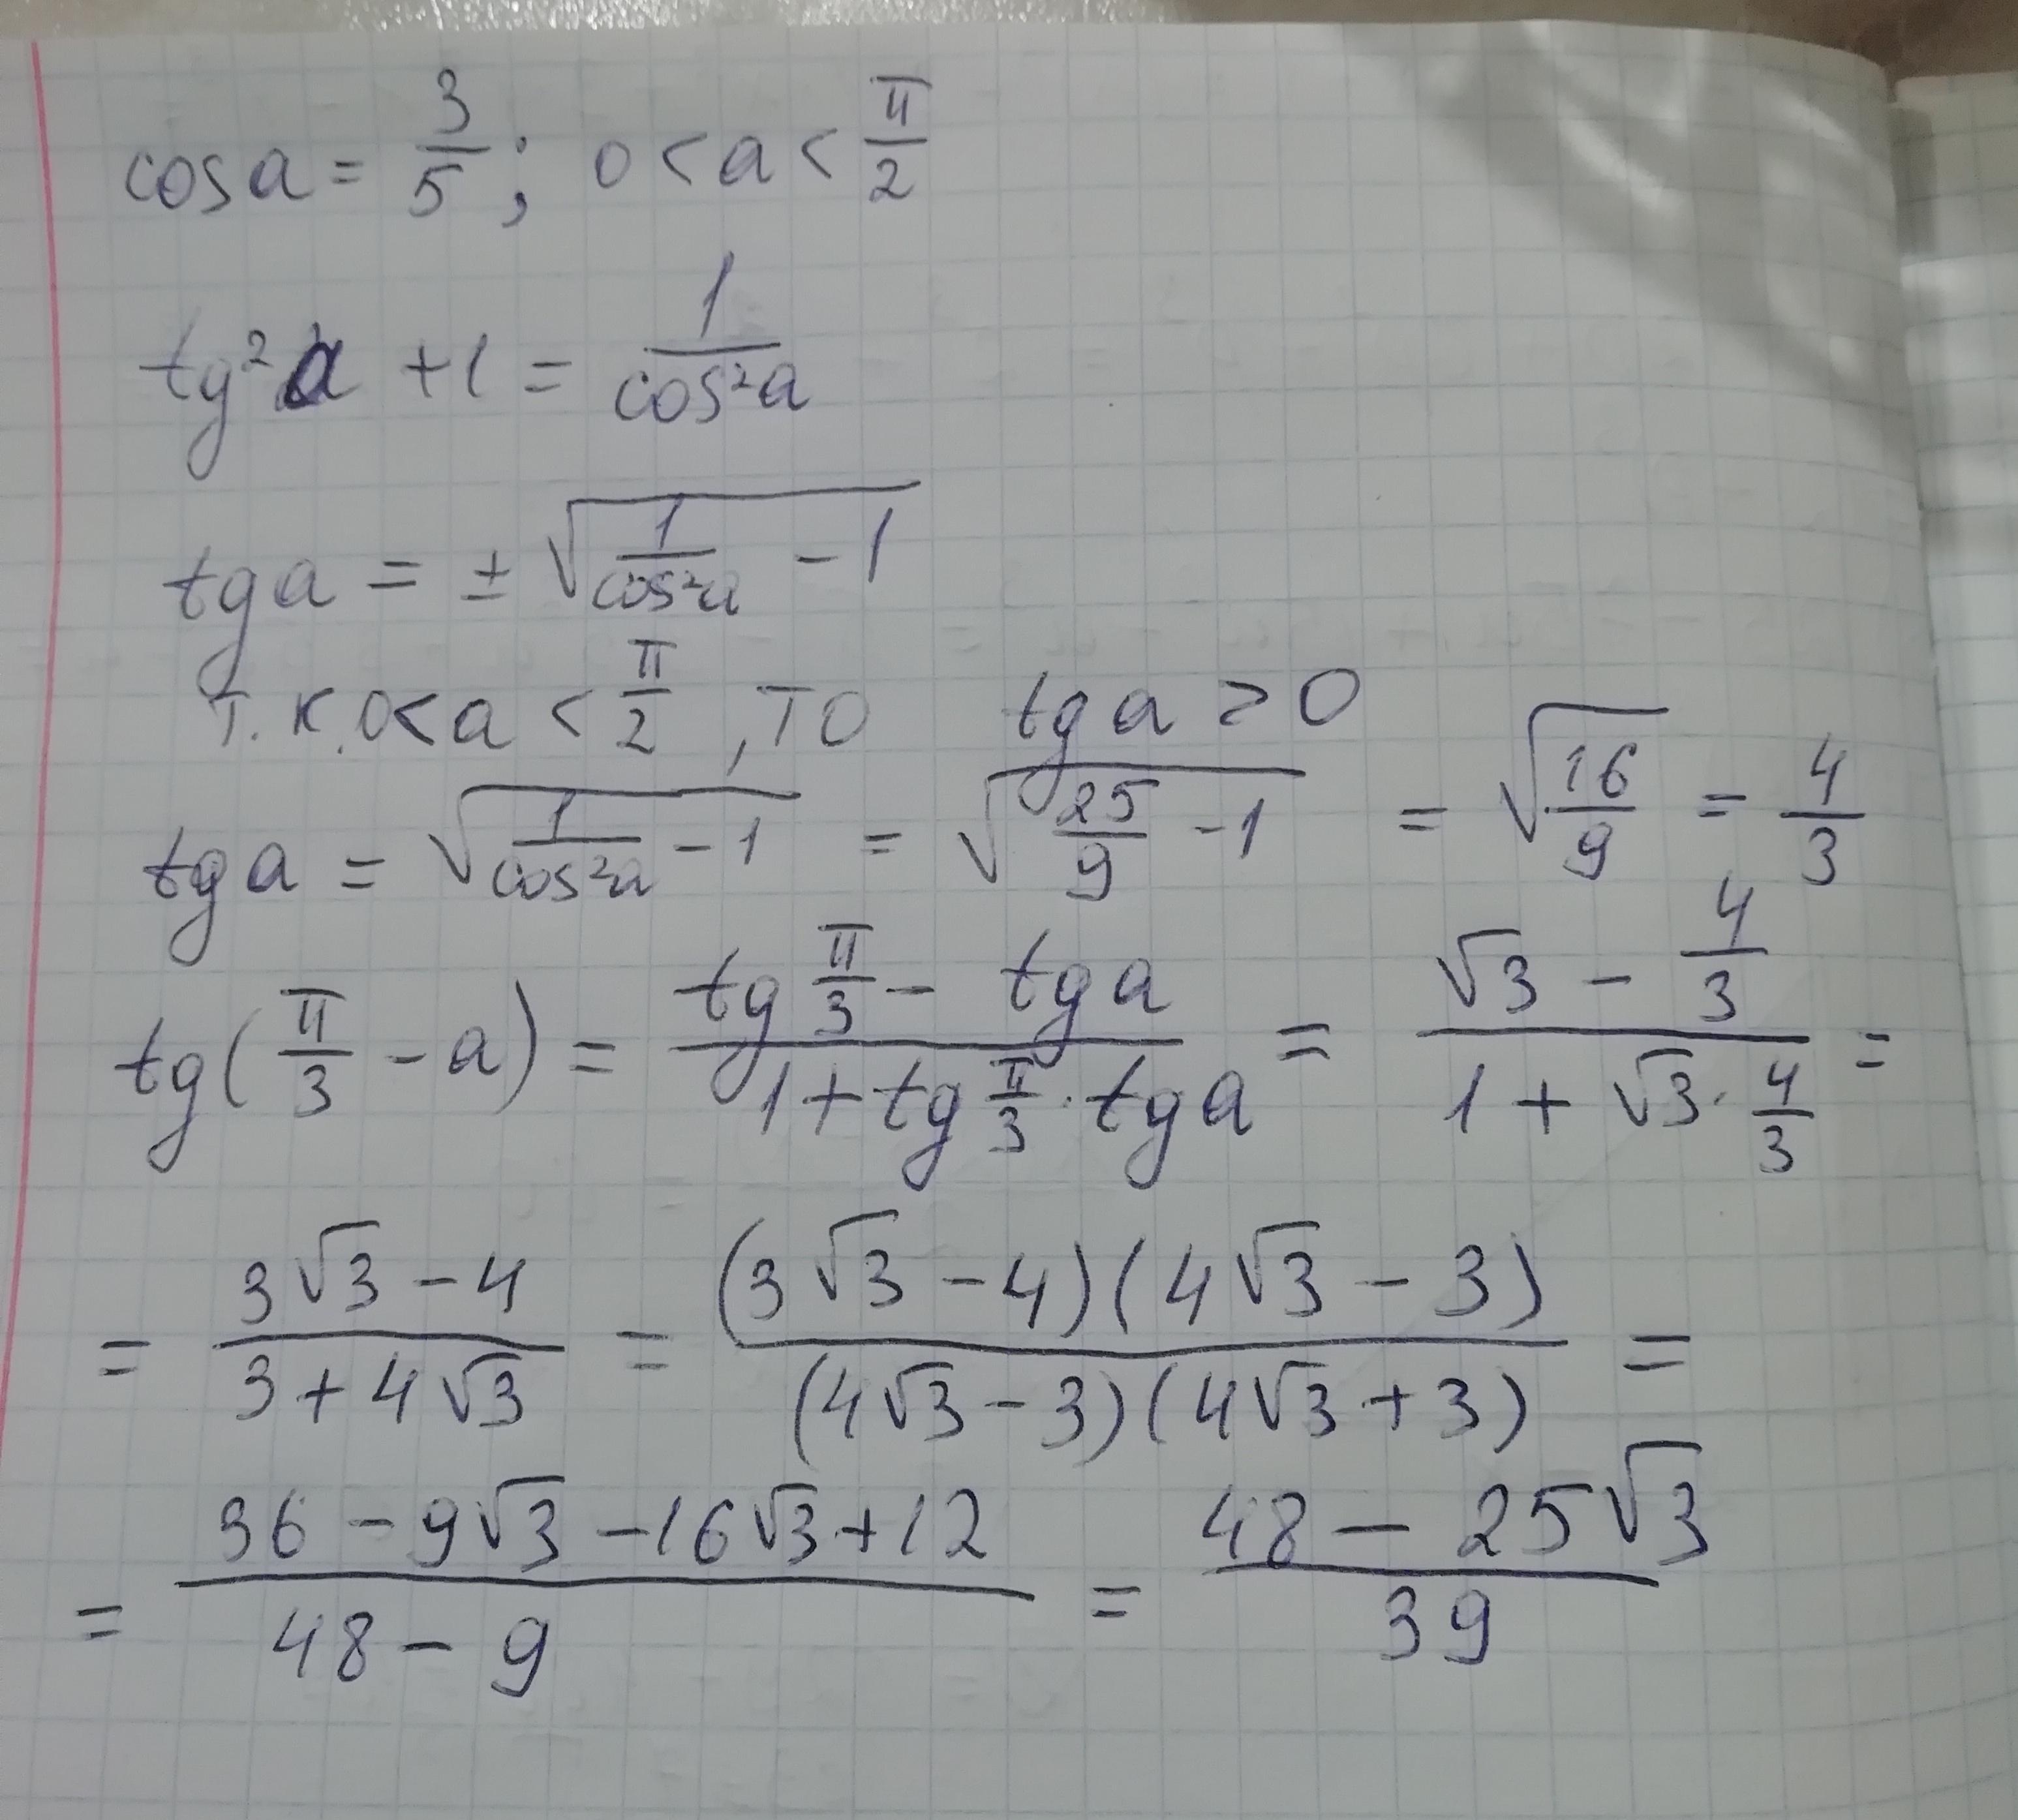 cos a = 3/5 ; 0 < a < π/2
tg² a + 1 = 1/cos²a
tg a = ± √(1/cos²a - 1)
т.к. 0 < a < π/2 , то tg a > 0
tg a = √(1/cos²a - 1) = √(25/9 - 1) = √(16/9) = 4/3
tg(π/3 - a) = (tg π/3 - tg a)/(1 + tg π/3 · tg a) = (√3 - 4/3)/(1 + √3 · 4/3) =
= (3√3 - 4)/(3 + 4√3) = ((3√3 - 4)(4√3 - 3))/((4√3 - 3)(4√3 + 3)) =
= (36 - 9√3 - 16√3 + 12)/(48 - 9) = (48 - 25√3)/39